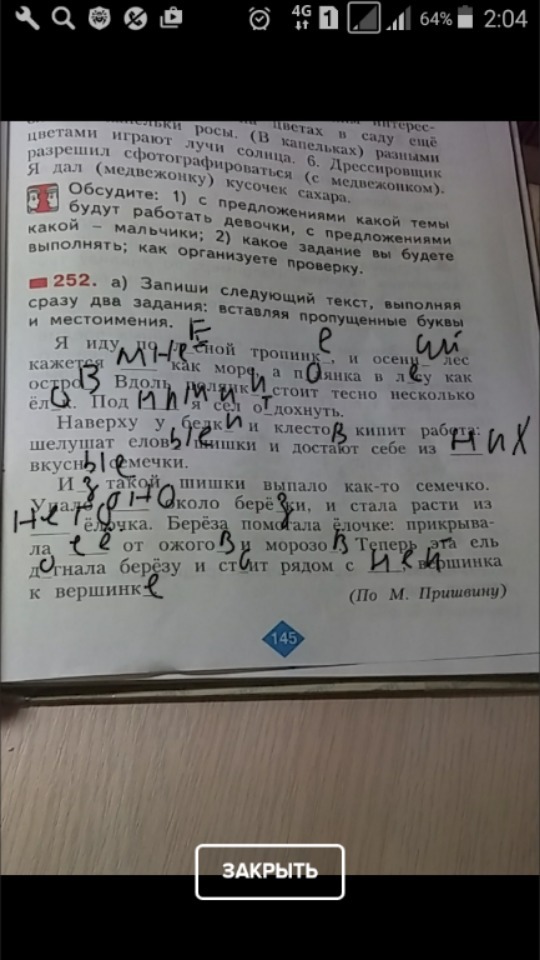 4G
1
64%
2:04
цветами играют лучи солнца. (В капельках) разными
разрешил сфотографироваться (с медвежонком).
Я дал (медвежонку) кусочек сахара.
Обсудите: 1) с предложениями какой темы
будут работать девочки, с предложениями
какой – мальчики; 2) какое задание вы будете
выполнять; как организуете проверку.
252. а) Запиши следующий текст, выполняя
сразу два задания: вставляя пропущенные буквы
и местоимения.
Я иду по лесной тропинке, и осений лес
кажется мне как море, а полянка в лесу как
остров Вдоль полянки стоит тесно несколько
ёлок. Под ними я сел отдохнуть.
Наверху у белки и клестов кипит работа:
шелушат еловые шишки и достают себе из них
вкусные семечки.
Из такой шишки выпало как-то семечко.
Упало оно около берёзки, и стала расти из
него ёлочка. Берёза помогала ёлочке: прикрыва-
ла её от ожогов и морозов Теперь эта ель
догнала берёзу и стоит рядом с ней, вершинка
к вершинке
(По М. Пришвину)
145
ЗАКРЫТЬ